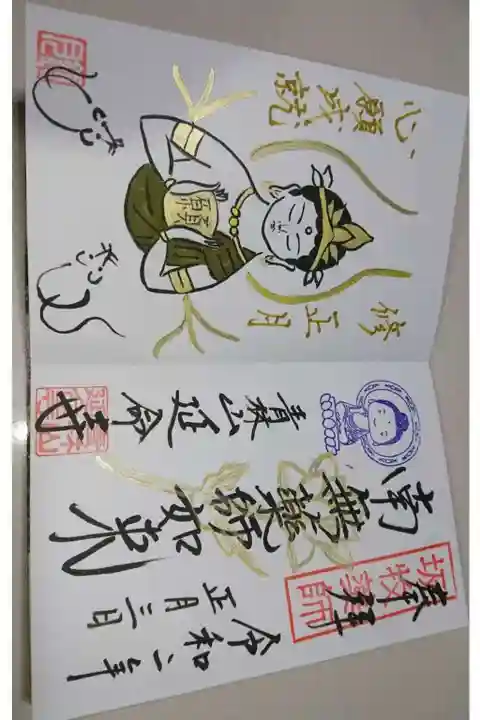 奉拝
令和二年
正月三日
南無薬師如来
青林山延命寺
修正月
願
心願成就